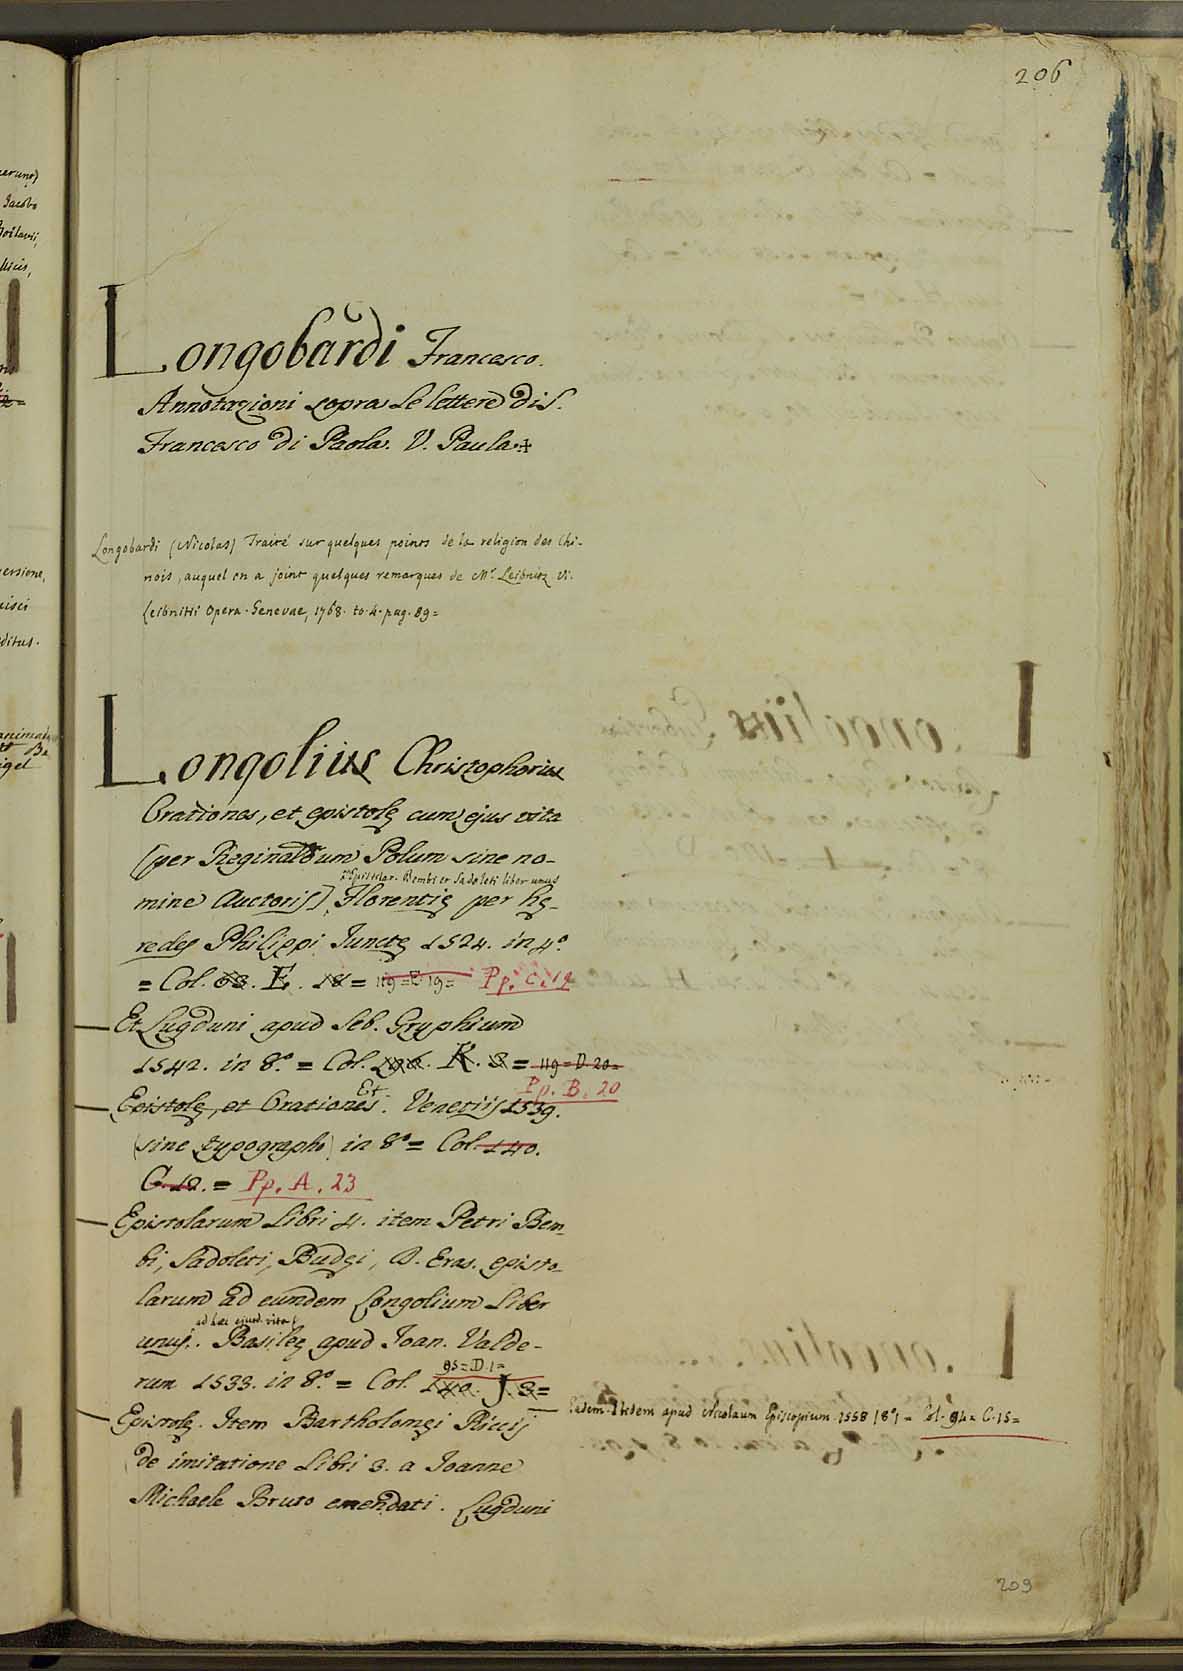 206
Longobardi Francesco.
Annotazioni sopra le lettere di S.
Francesco di Paola. V. Paula +
Longobardi (Nicolas) Traité sur quelques points de la religion des Chi-
nois, auquel on a joint quelques remarques de Mr. Leibnitz V.
Leibnitii Opera. Genevae, 1768. to. 4. pag. 89=
Longolius Christophorus
Orationes, et epistolę cum ejus vita
(per Reginaldum Polum sine no-
Epistolar. Bembi et Sadoleti liber unus
mine Auctoris) Florentię per hę-
redes Philippi Junctę 1524. in 4°.
= Col. 63. E. 18 = 119 = E. 19 = Pp. C. 12
Et Lugduni apud Seb. Gryphium
1542. in 8.° = Col. K. 3 = 119 = D. 20 =
Pp. B. 20
Epistolę, et Orationes. Et Venetiis 1539.
(sine typographo) in 8° = Col. 140.
G. 12. = Pp. A. 23
Epistolarum Libri 4. item Petri Bem-
bi, Sadoleti, Budęi, D. Eras. episto-
larum ad eundem Longolium Liber
ad hęc ejusd. vita
unus. Basileę apud Joan. Valde-
95 = D. 1 =
rum 1533. in 8.° = Col. 140. J. 3 =
Eadem. Ibidem apud Nicolaum Episcopium 1558 (8°) = Col. 94 = C. 15 =
Epistolę. Item Bartholomęi Riccij
de imitatione Libri 3. a Joanne
Michaele Bruto emendati. Lugduni
209